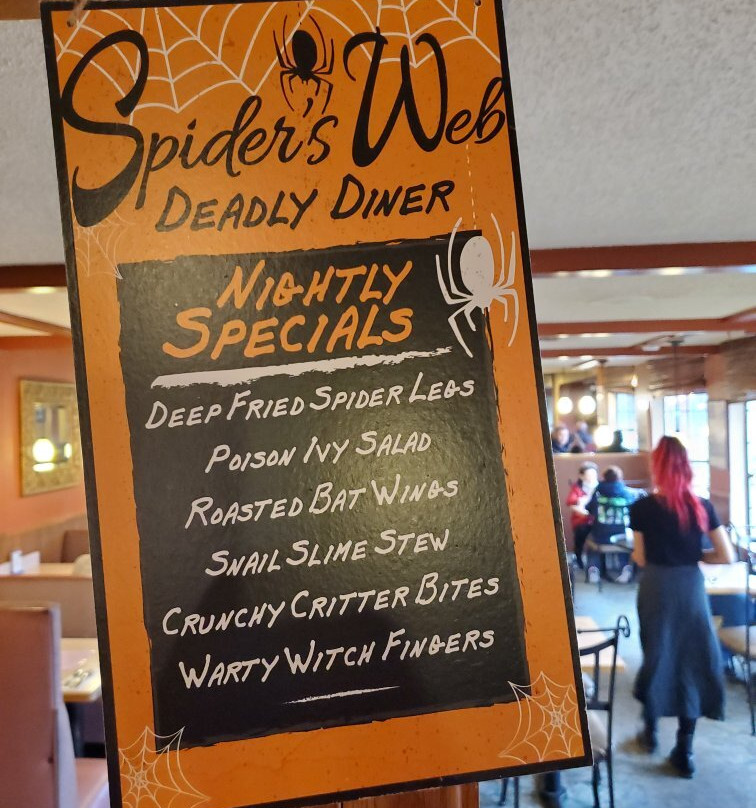 Spider's Web
DEADLY DINER
NIGHTLY
SPECIALS
DEEP FRIED SPIDER LEGS
POISON IVY SALAD
ROASTED BAT WINGS
SNAIL SLIME STEW
CRUNCHY CRITTER BITES
WARTY WITCH FINGERS